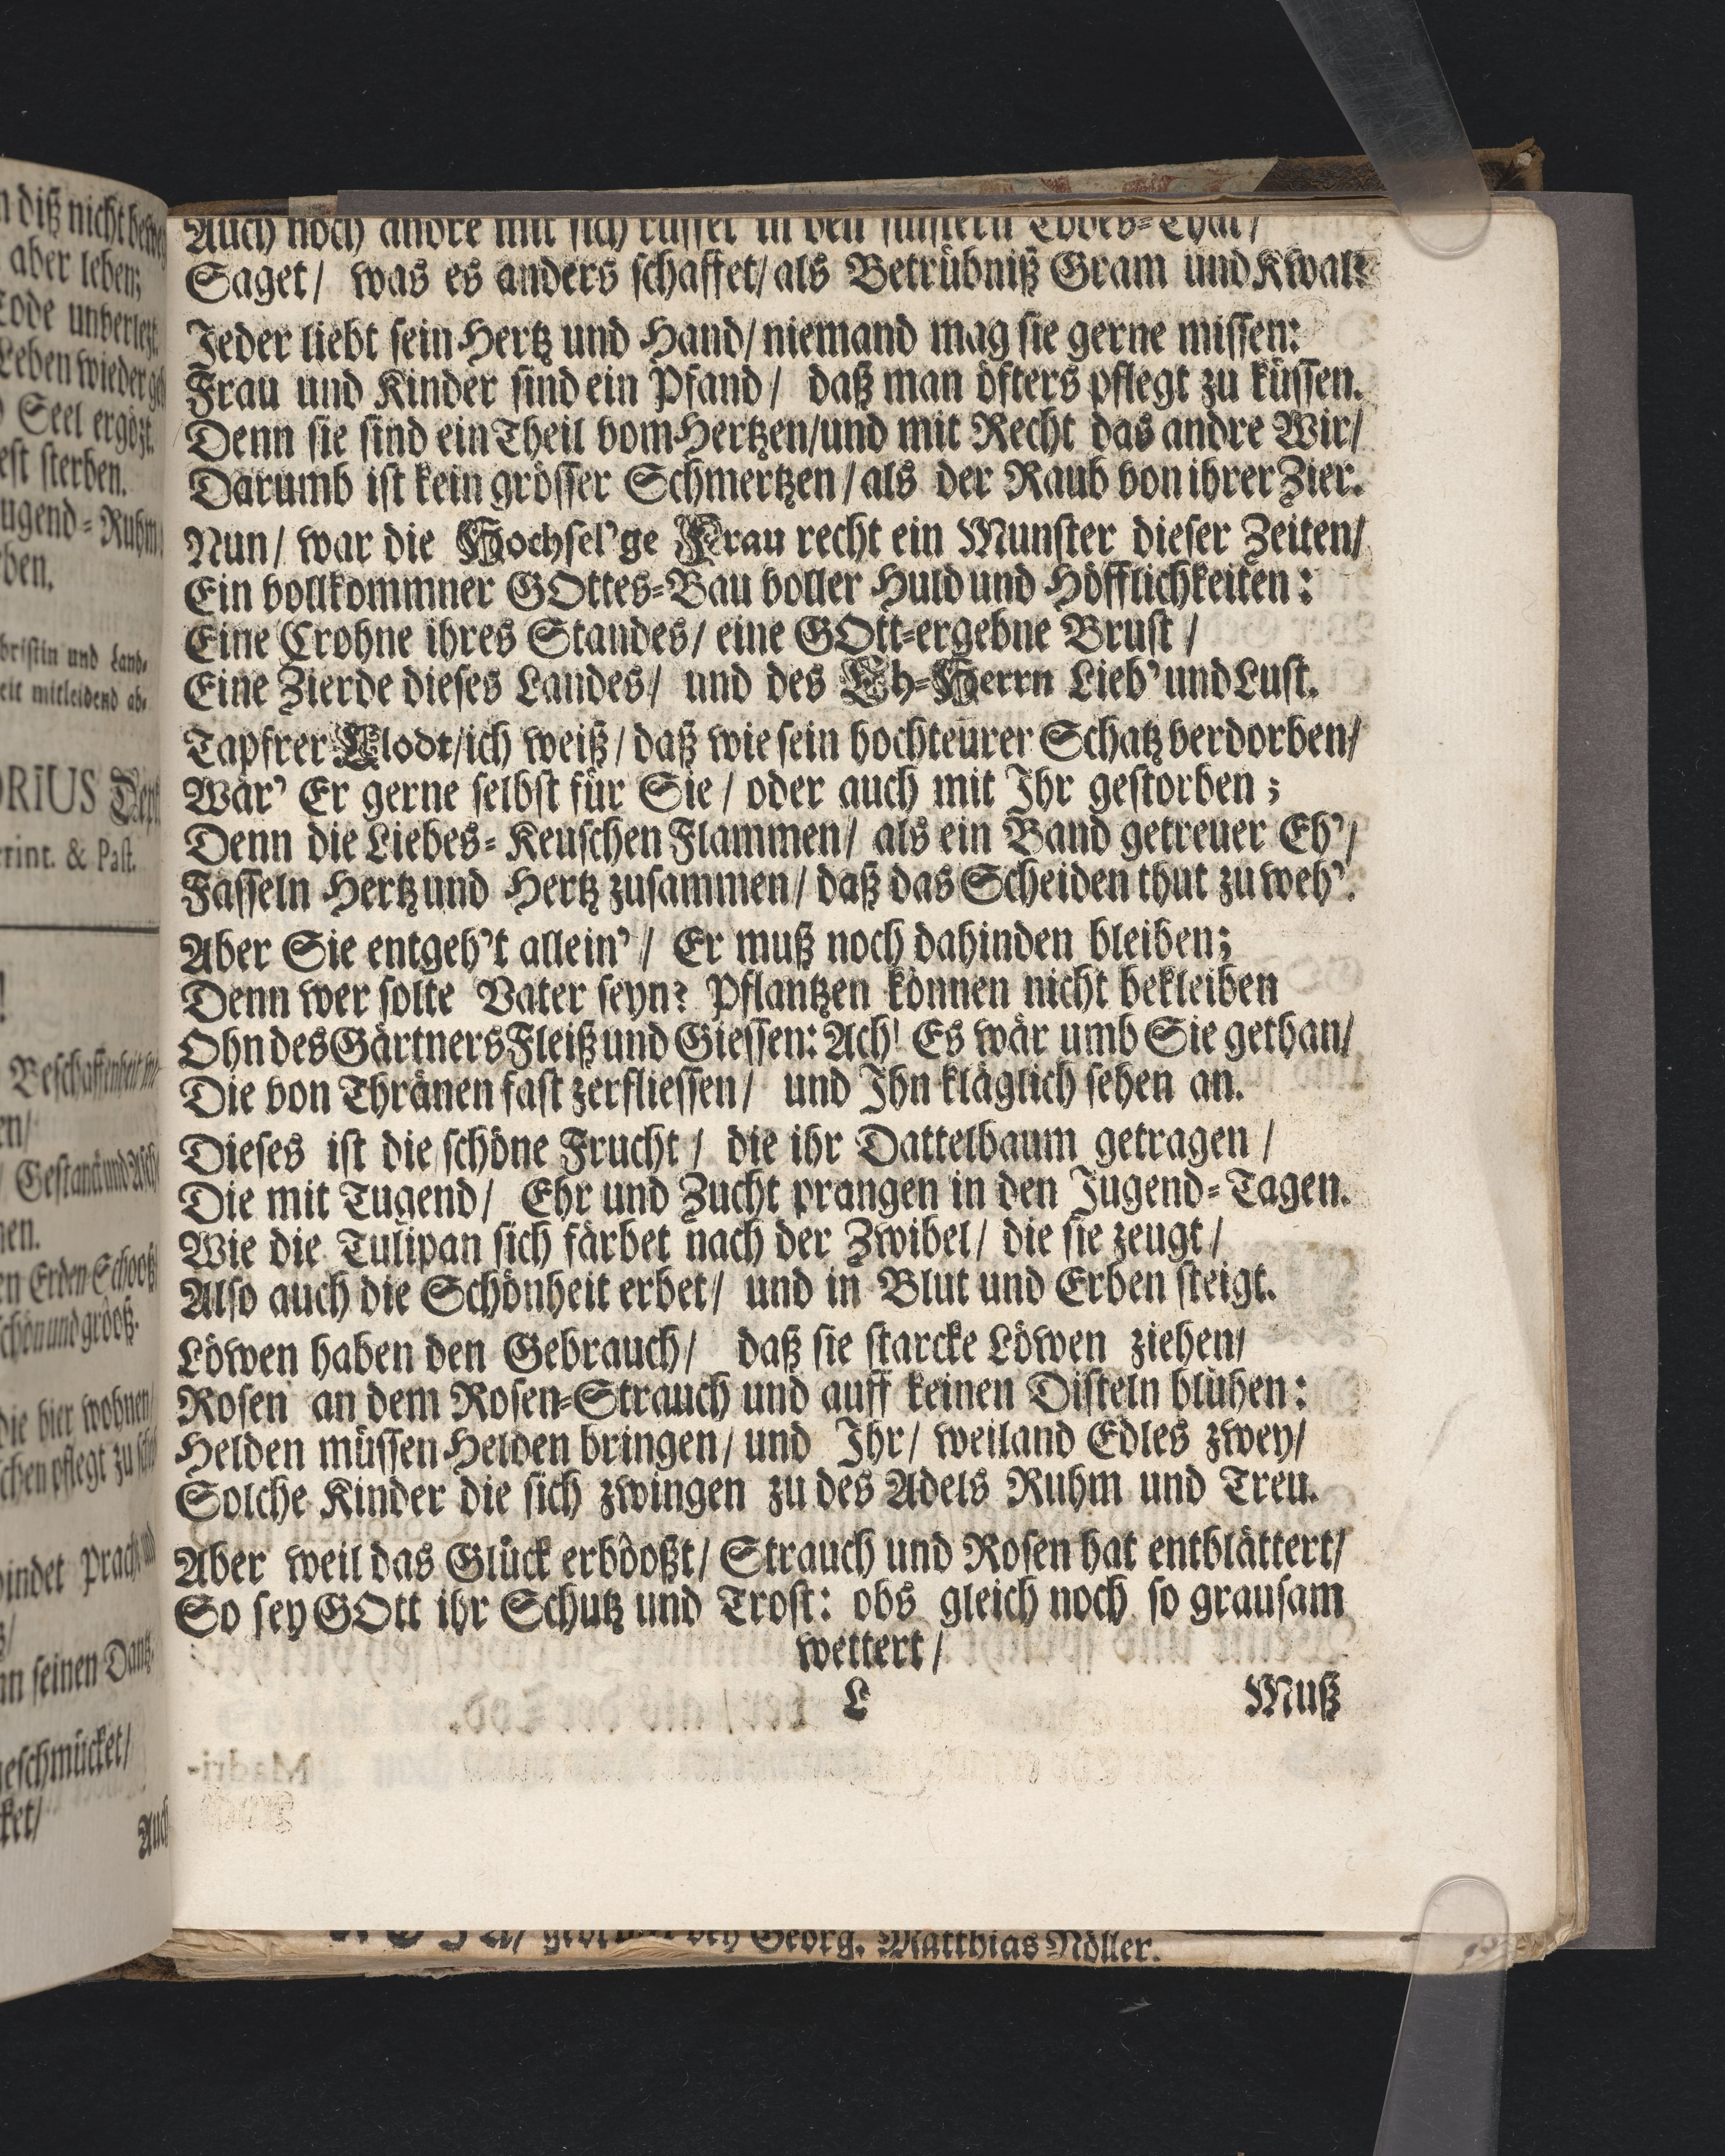 n diß nicht
aber leben;
Tode unverletzt.
Leben wieder
Seel ergötzt.
est sterben.
ugend-Ruhm
ben.
bristin und Land-
eit mitleidend ab-
ORIUS
rint. & Past.
!
Beschaffenheit
en/
Gestanck und
nen.
en Erden-Schooß/
schön und grooß.
die hier wohnen/
schen pflegt zu
bindet Pracht und
nn seinen Dantz.
geschmücket/
ket/
Auch
Auch noch andre mit sich raffet in den finstern Todes-Thal/
Saget/ was es anders schaffet/ als Betrübniß Gram und Kwal?
Jeder liebt sein Hertz und Hand/ niemand mag sie gerne missen:
Frau und Kinder sind ein Pfand/ daß man öfters pflegt zu küssen.
Denn sie sind ein Theil vom Hertzen/ und mit Recht das andre Wir/
Darumb ist kein grösser Schmertzen/ als der Raub von ihrer Zier.
Nun/ war die Hochsel'ge Frau recht ein Munster dieser Zeiten/
Ein vollkommner GOttes-Bau voller Huld und Höfflichkeiten:
Eine Crohne ihres Standes/ eine GOtt-ergebne Brust/
Eine Zierde dieses Landes/ und des Eh-Herrn Lieb' und Lust.
Tapfrer Clodt/ ich weiß/ daß wie sein hochteurer Schatz verdorben/
Wär' Er gerne selbst für Sie/ oder auch mit Ihr gestorben;
Denn die Liebes-Keuschen Flammen/ als ein Band getreuer Eh'/
Fasseln Hertz und Hertz zusammen/ daß das Scheiden thut zu weh'.
Aber Sie entgeh't allein'/ Er muß noch dahinden bleiben;
Denn wer solte Vater seyn? Pflantzen können nicht bekleiben
Ohn des Gärtners Fleiß und Giessen: Ach! Es wär umb Sie gethan/
Die von Thränen fast zerfliessen/ und Ihn kläglich sehen an.
Dieses ist die schöne Frucht/ die ihr Dattelbaum getragen/
Die mit Tugend/ Ehr und Zucht prangen in den Jugend-Tagen.
Wie die Tulipan sich färbet nach der Zwibel/ die sie zeugt/
Also auch die Schönheit erbet/ und in Blut und Erben steigt.
Löwen haben den Gebrauch/ daß sie starcke Löwen ziehen/
Rosen an dem Rosen-Strauch und auff keinen Disteln blühen:
Helden müssen Helden bringen/ und Ihr/ weiland Edles zwey/
Solche Kinder die sich zwingen zu des Adels Ruhm und Treu.
Aber weil das Glück erbooßt/ Strauch und Rosen hat entblättert/
So sey GOtt ihr Schutz und Trost: obs gleich noch so grausam
wettert/
L Muß
Georg. Matthias Nöller.